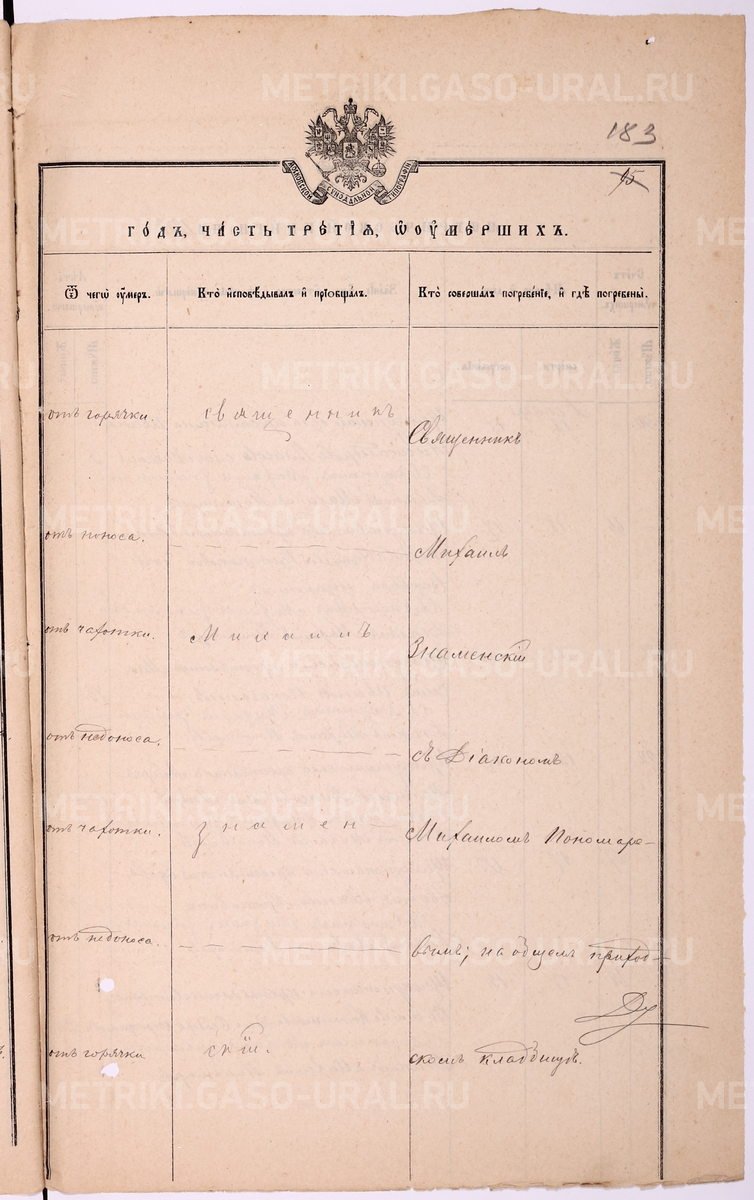 METRIKI.GASO-URAL.RU
183
МОСКОВСКОЙ СѴНОДАЛЬНОЙ ТИПОГРАФІИ
15
ГО́ДЪ, ЧА́СТЬ ТРЕ́ТІѦ, Ѡ҆ОУ҆МЕ́РШИХЪ.
Ѿ чегѡ̀ оу҆́меръ.
Кто̀ и҆сповѣ́дывалъ и҆ прїѡбща́лъ.
Кто̀ соверша́лъ погребе́нїе, и҆ гдѣ̀ погребены̀.
отъ горячки.
священникъ
Священникъ
отъ поноса.
Михаилъ
отъ чахотки.
Михаилъ
Знаменскій
отъ недоноса.
съ Діакономъ
отъ чахотки.
Знамен
Михаиломъ Пономаре-
отъ недоноса.
вымъ; на общемъ приход-
отъ горячки
скій.
скомъ кладбищѣ.